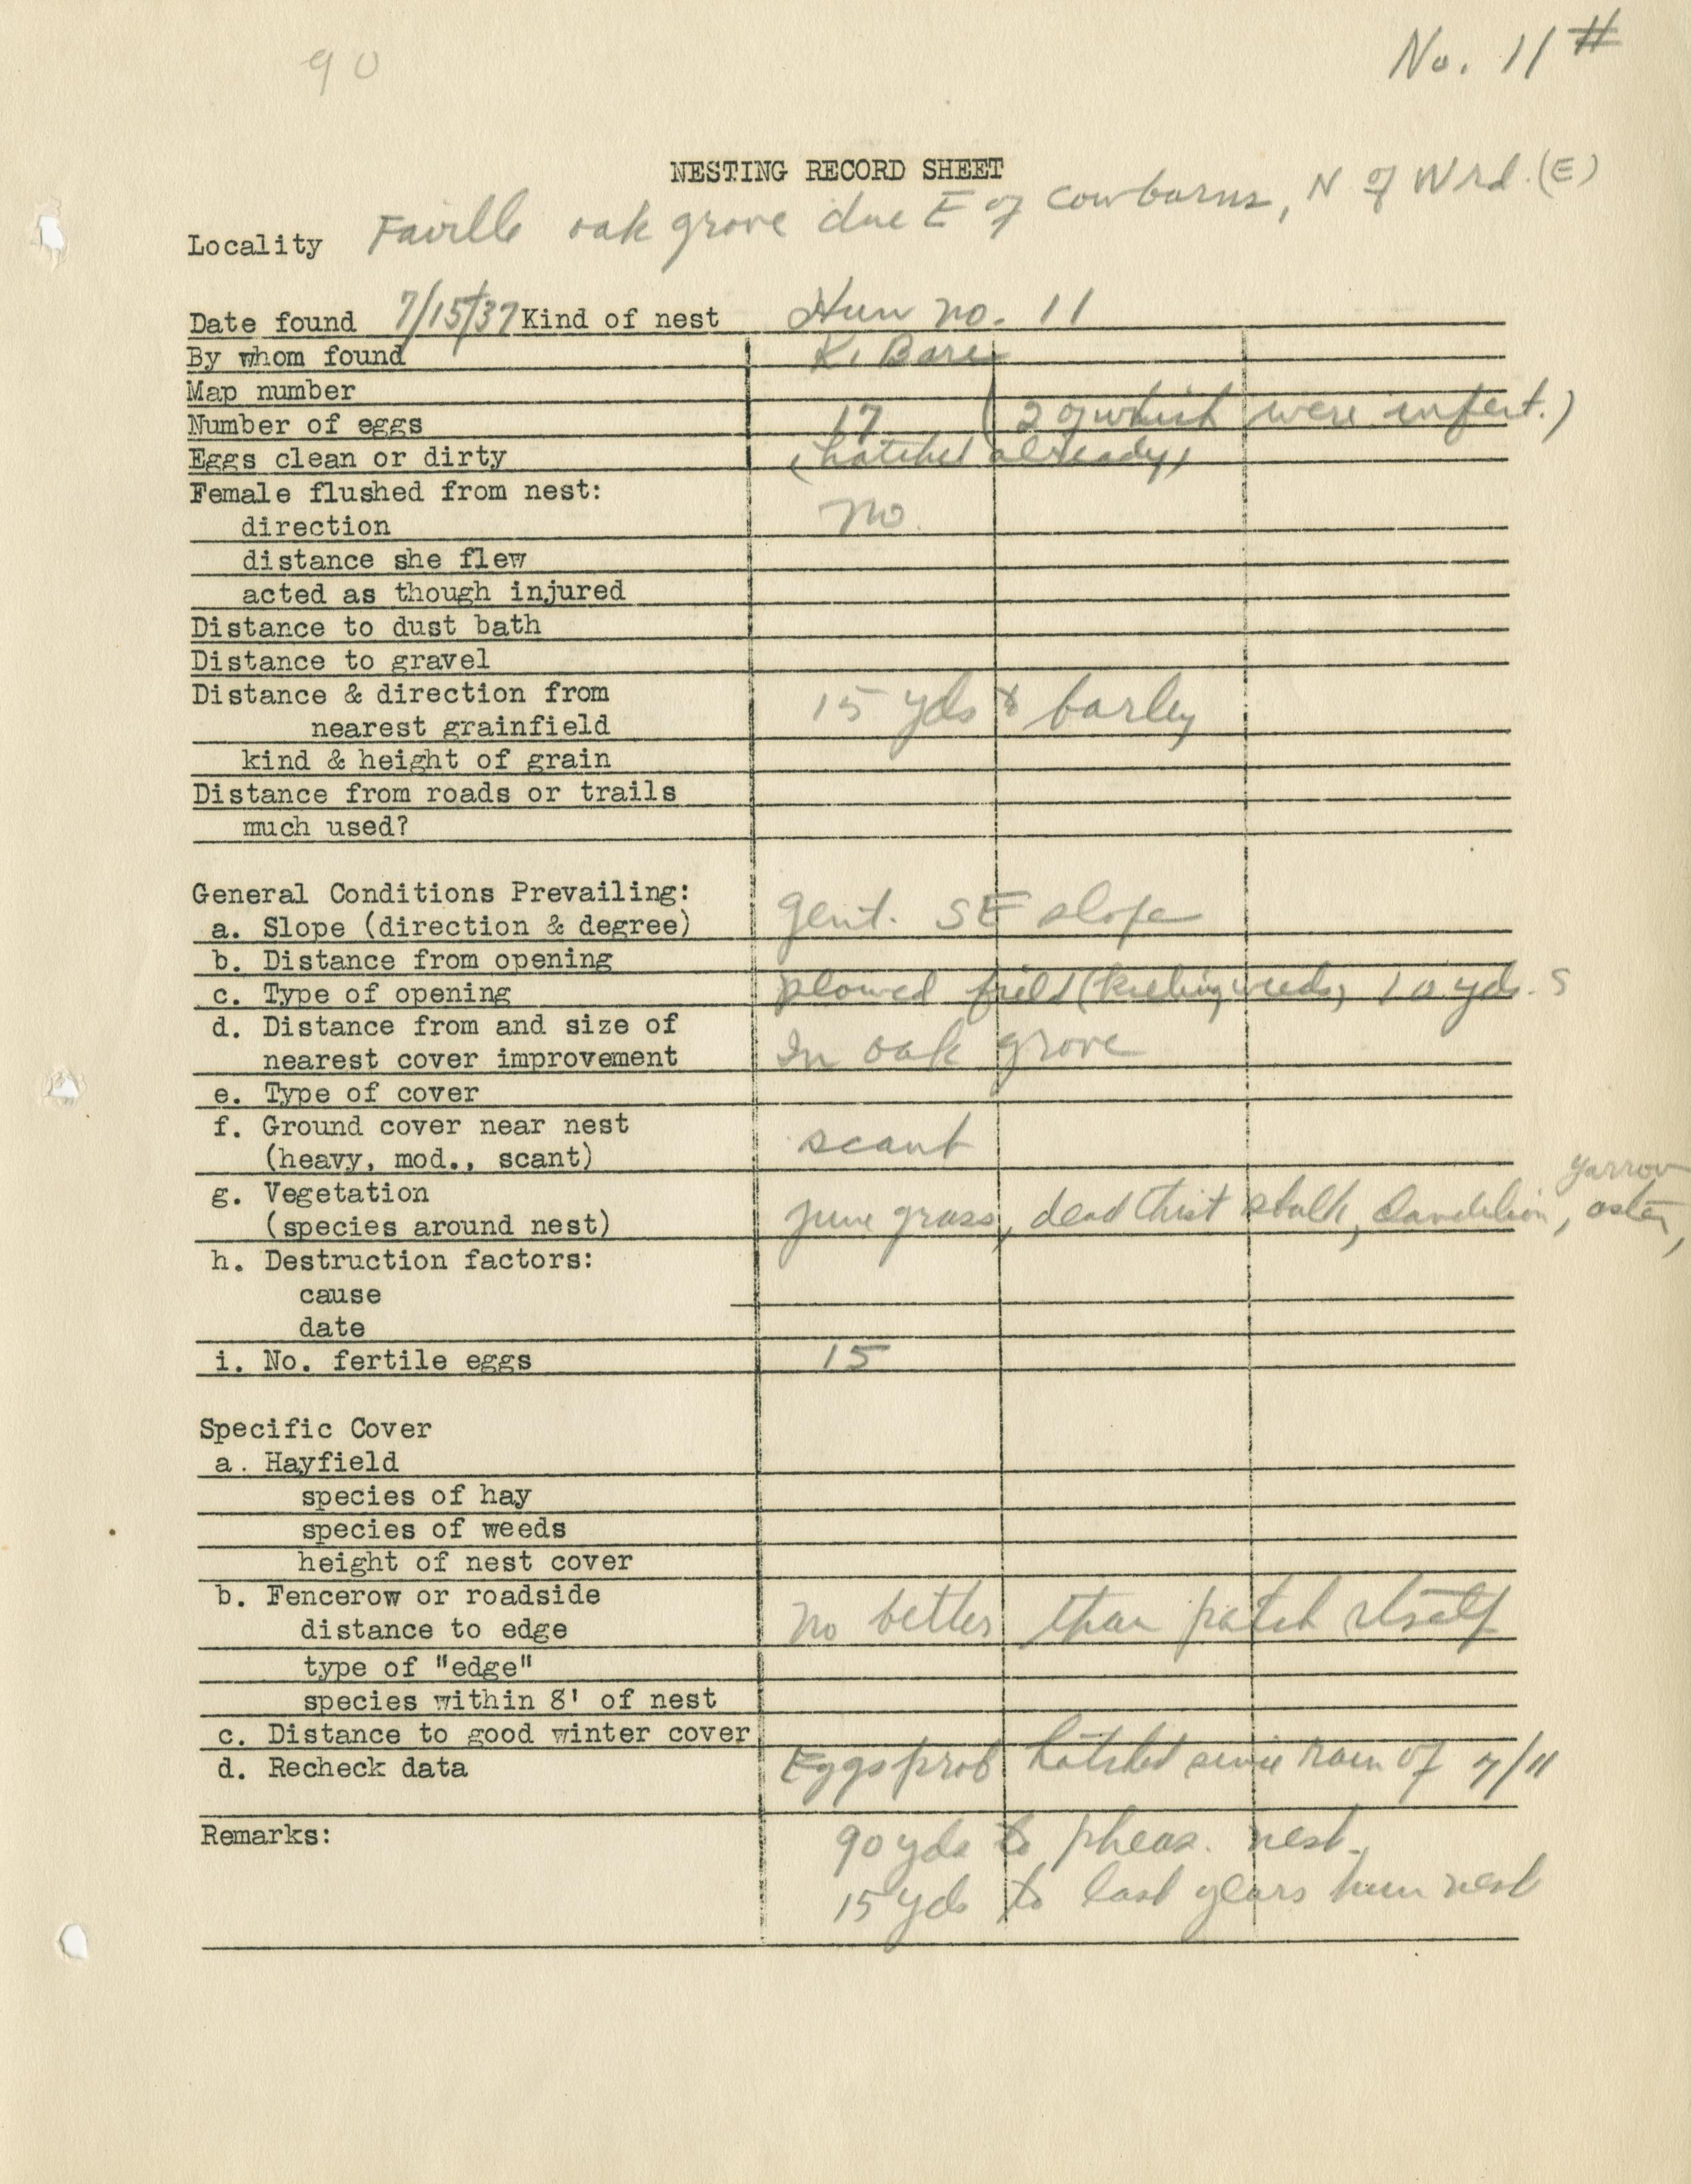 90
No. 11 #
NESTING RECORD SHEET
Locality Faville oak grove due E of cowbarns, N of W rd. (E)
Date found 7/15/37 Kind of nest Hun no. 11
By whom found K.
Map number
Number of eggs 17 (2 of which were infert.)
Eggs clean or dirty (hatched already)
Female flushed from nest: no.
direction
distance she flew
acted as though injured
Distance to dust bath
Distance to gravel
Distance & direction from 15 yds to barley
nearest grainfield
kind & height of grain
Distance from roads or trails
much used?
General Conditions Prevailing:
a. Slope (direction & degree) gent. SE slope
b. Distance from opening
c. Type of opening plowed field ( weeds) 10 yds. S
d. Distance from and size of
nearest cover improvement In oak grove
e. Type of cover
f. Ground cover near nest
(heavy, mod., scant) scant
g. Vegetation yarrow
(species around nest) june grass, dead thist stalk, dandelion, aster,
h. Destruction factors:
cause
date
i. No. fertile eggs 15
Specific Cover
a. Hayfield
species of hay
species of weeds
height of nest cover
b. Fencerow or roadside
distance to edge no better than patch itself
type of "edge"
species within 8' of nest
c. Distance to good winter cover
d. Recheck data Eggs prob hatched since rain of 7/11
Remarks: 90 yds to pheas. nest.
15 yds to last years hun nest